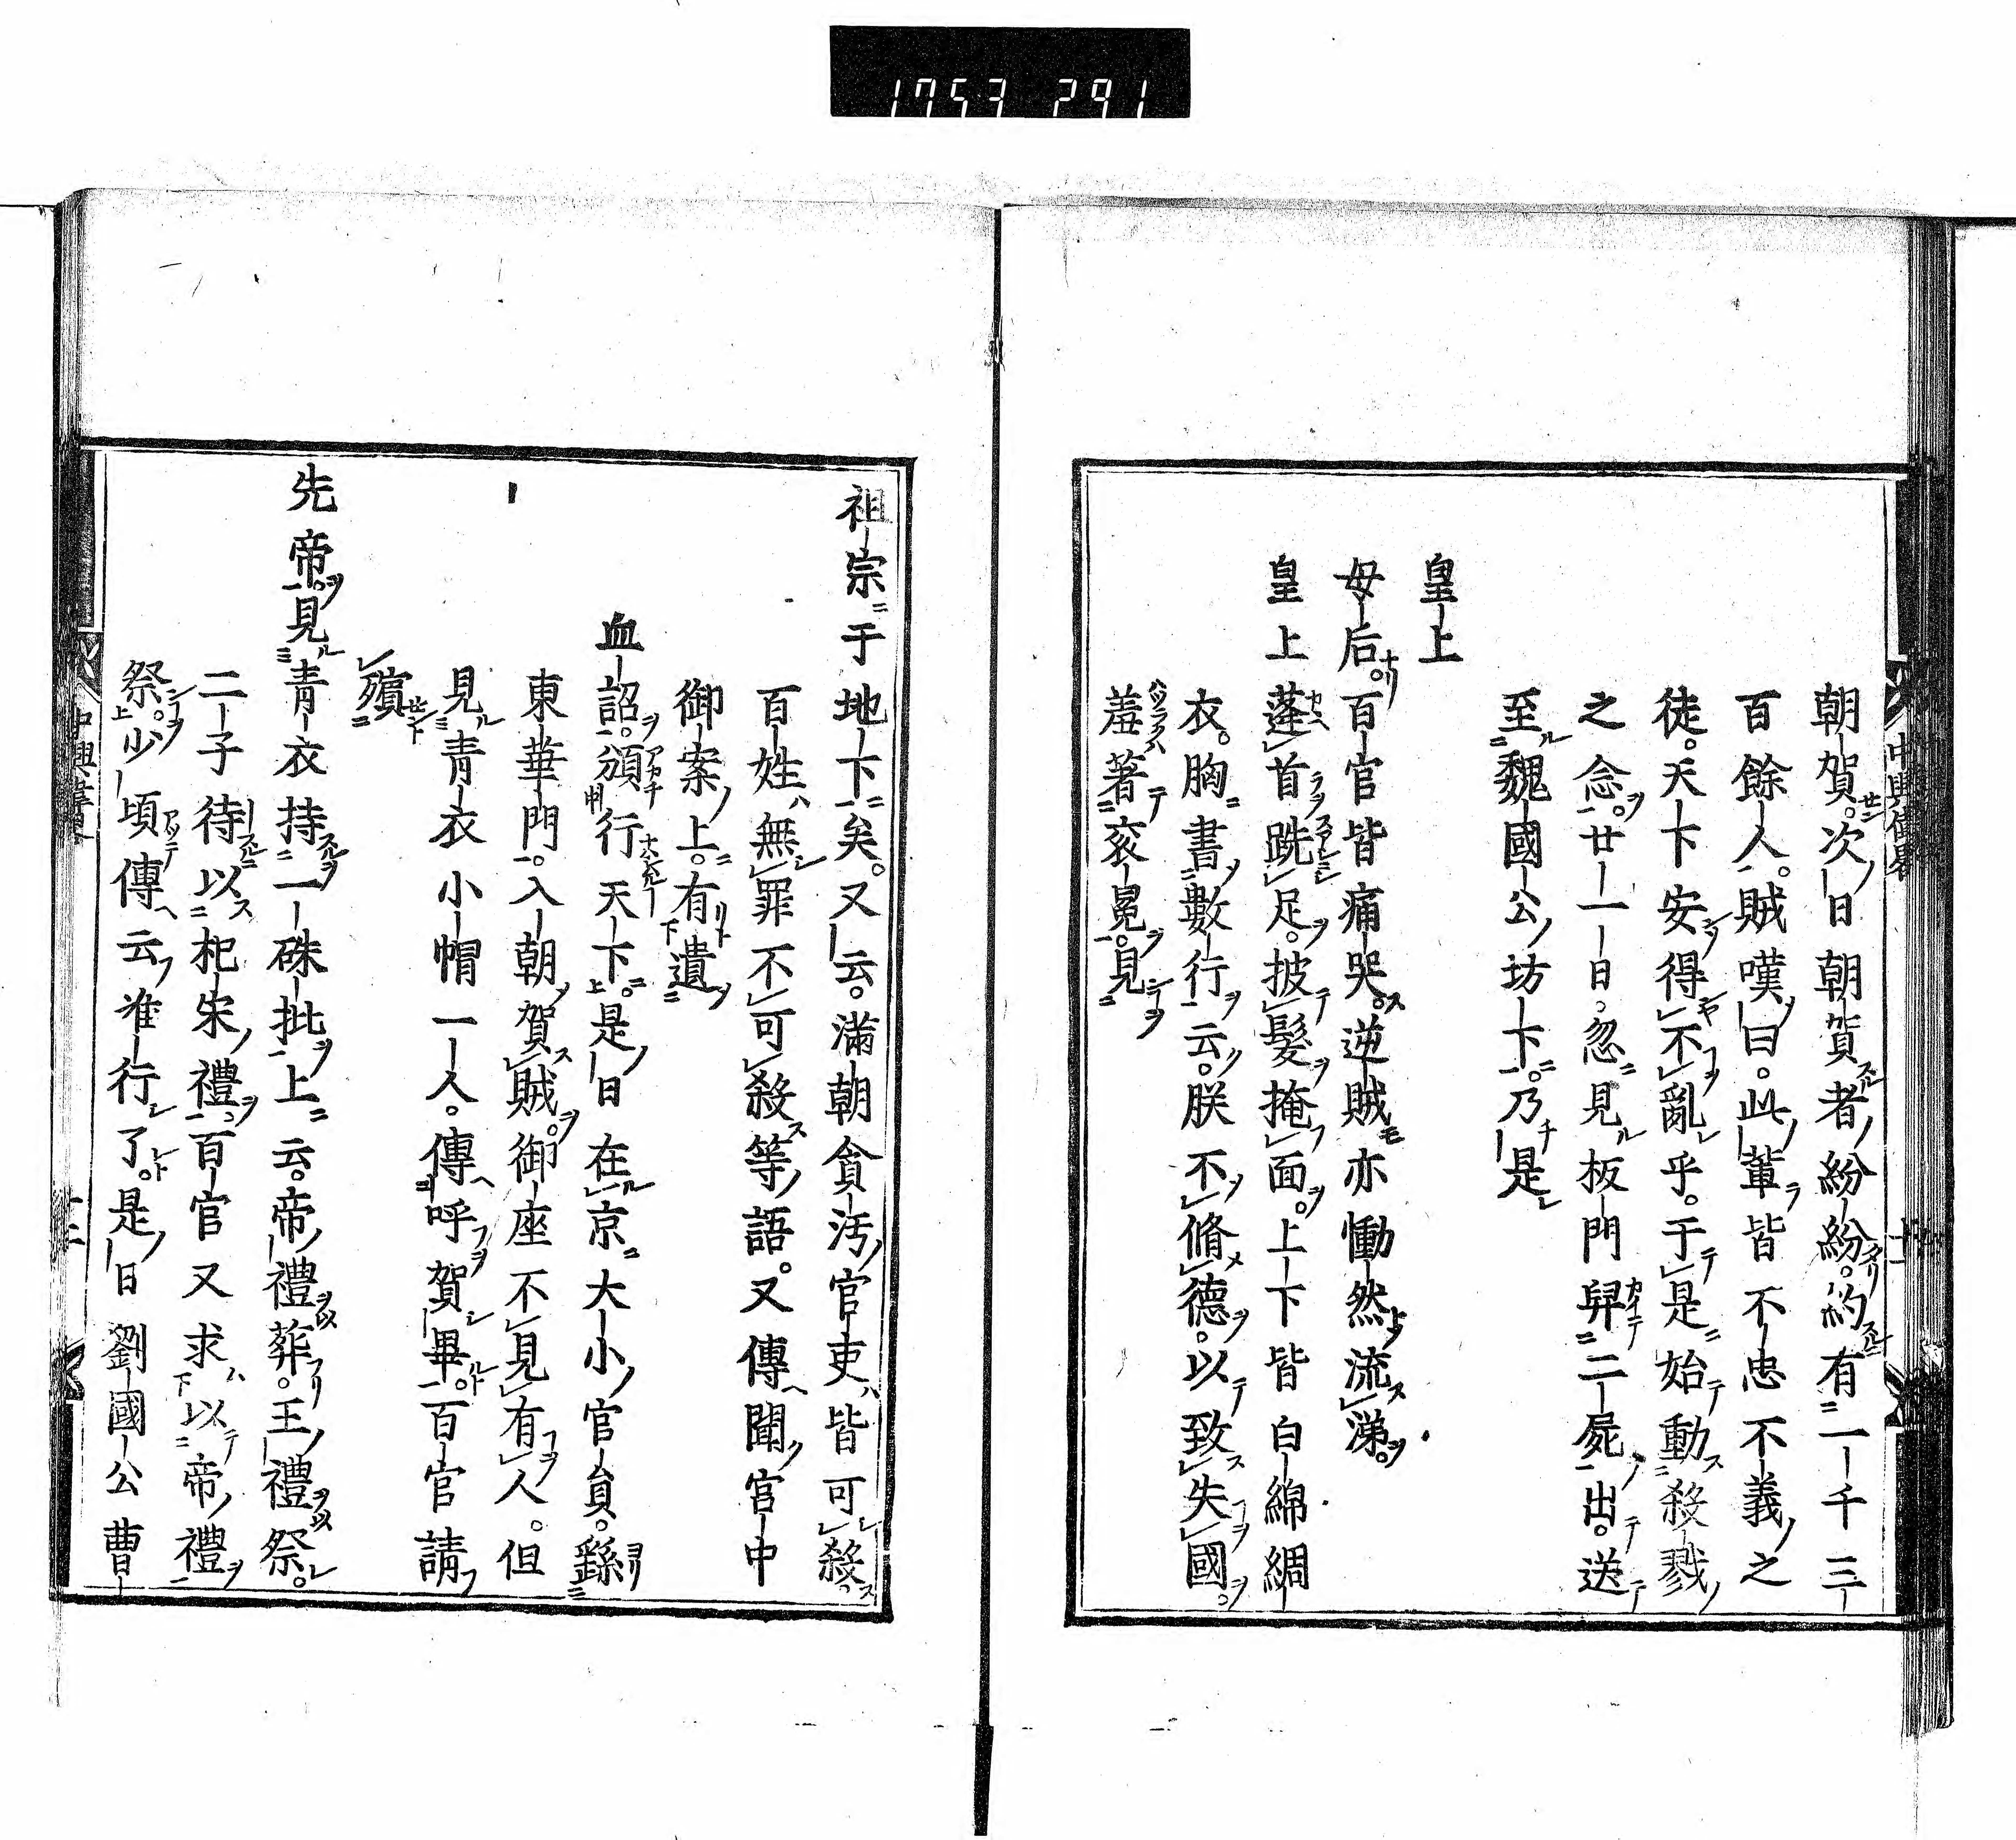 1753 291
朝賀。次日朝賀者紛紛。約有一千三
百餘人。賊嘆曰。此輩皆不忠不義之
徒。天下安得不亂乎。于是始動殺戮
之念。廿一日。忽見板門舁二屍出。送
至魏國公坊下。乃是
皇上
母后。百官皆痛哭。逆賊亦慟然流涕。
皇上蓬首跣足。披髮掩面。上下皆白綿綢
衣。胸書數行云。朕不脩德。以致失國。
羞著衮冕。見
祖宗于地下矣。又云。滿朝貪汚官吏皆可殺。
百姓無罪不可殺等語。又傳聞宮中
御案上。有遺
血詔。頒行天下。是日在京大小官員。繇
東華門。入朝賀賊。御座不見有人。但
見青衣小帽一人。傳呼賀畢。百官請
殯
先帝。見青衣持一硃批上云。帝禮葬。王禮祭。
二子待以杞宋禮。百官又求以帝禮
祭。少頃傳云准行了。是日劉國公曹
中興偉畧
十一
十二